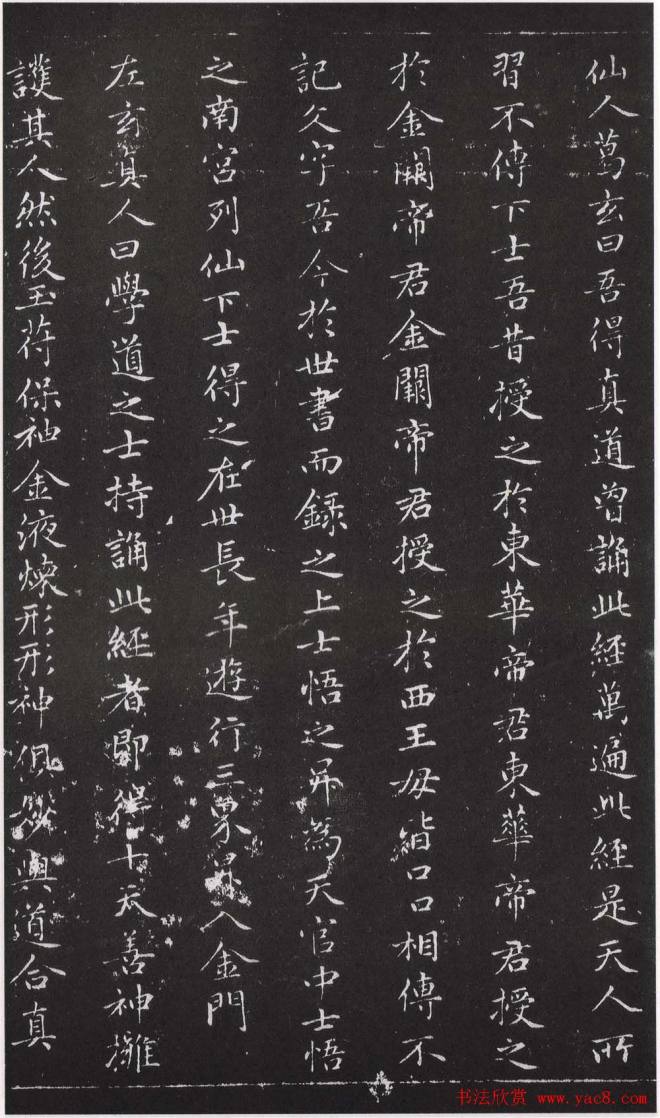 仙人葛玄曰吾得真道曾誦此經萬遍此經是天人所
習不傳下士吾昔授之於東華帝君東華帝君授之
於金闕帝君金闕帝君授之於西王母皆口口相傳不
記文字吾今於世書而録之上士悟之昇為天官中士悟
之南宮列仙下士得之在世長年遊行三界昇入金門
左玄真人曰學道之士持誦此經者即得十天善神擁
護其人然後玉苻保神金液煉形形神俱妙與道合真
书法欣赏 www.yac8.com